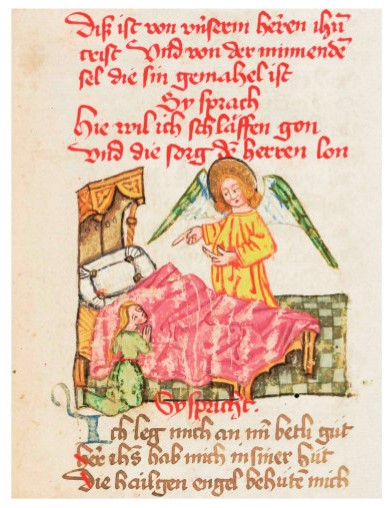 Diß ist von vnserm herren ihū
crist Vnd von der minnendē
sel die sin gemahel ist
Sy sprach
Hie wil ich schläffen gon
vnd die sorg dē herren lon
Sy spricht.
Ich leg mich an mī betli gůt
her ihs hab mich in siner hůt
Die hailgen engel behůtē mich